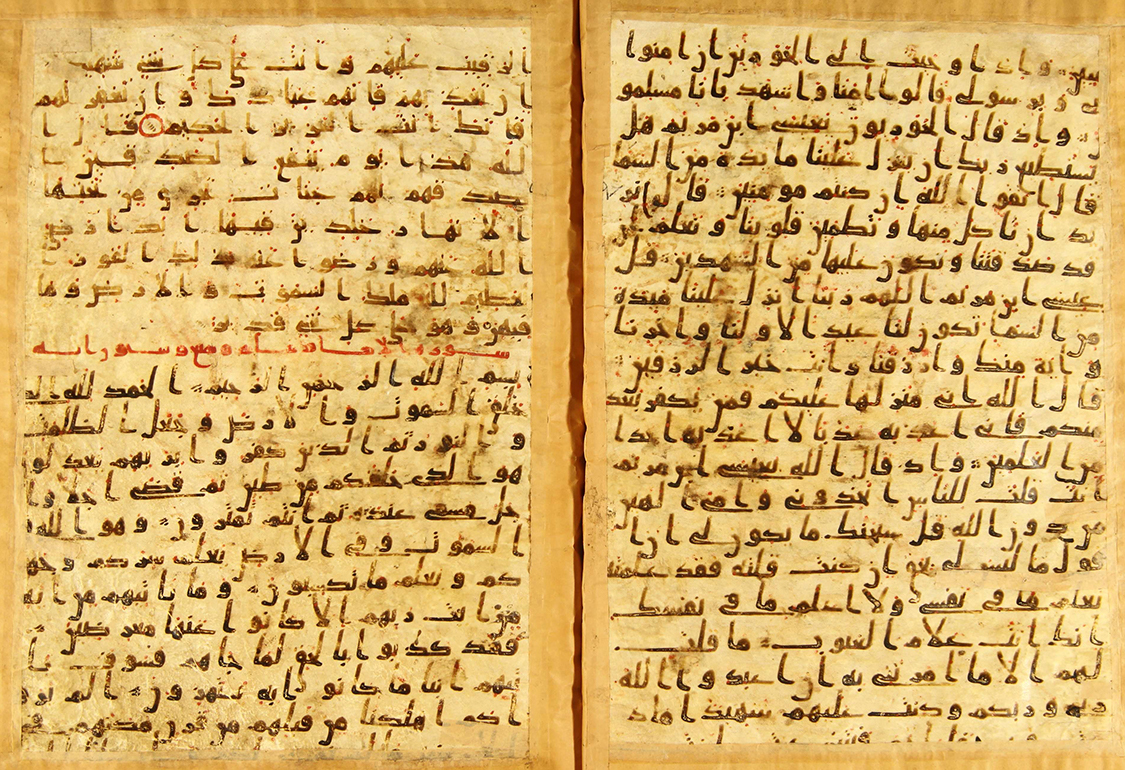 مبين واذ اوحيت الى الحورين ان امنوا
بى وبرسولى قالوا امنا واشهد بانا مسلمو
ن واذ قال الحوريون يعيسى ابن مريم هل
يستطيع ربك ان ينزل علينا مائدة من السما
قال اتقوا الله ان كنتم مومنين قالوا نر
يد ان ناكل منها وتطمين قلوبنا ونعلم ان
قد صدقتنا ونكون عليها من الشهدين قل
عيسى ابن مريم اللهم ربنا انزل علينا ميدة
من السما تكون لنا عيدا لاولنا واخرنا
واية منك وارزقنا وانت خير الرزقين
قال الله انى منزلها عليكم فمن يكفر بعد
منكم فانى اعذبه عذبا لا اعذبه احدا
من العلمين واذ قال الله يعيسى ابن مريم
انت قلت للناس اتخذونى وامى الهين
من دون الله قل سبحنك ما يكون لى ان ا
قول ما ليس لى بحق ان كنت قلته فقد علمته
تعلم ما فى نفسى ولا اعلم ما فى نفسك
انك انت علام الغيوب ما قلت
لهم الا ما امرتنى به ان اعبدوا الله
ربى وربكم وكنت عليهم شهيدا ما د
لرقيب عليهم وانت على كل شى شهيد
ان تعذبهم فانهم عبادك وان تغفر لهم
فانك انت العزيز الحكيم قال ا
لله هذا يوم ينفع الصدقين
صدقهم لهم جنات تجرى من تحتها
الانهار خلدين فيها ابدا رضى
الله عنهم ورضوا عنه ذلك الفوز ا
لعظيم لله ملك السموت والارض وما
فيهن وهو على كل شى قدير
بسم الله الرحمن الرحيم الحمد لله الذى
خلق السموت والارض وجعل الظلمت
والنور ثم الذين كفروا بربهم يعدلون
هو الذى خلقكم من طين ثم قضى اجلا وا
جل مسمى عنده ثم انتم تمترون وهو الله فى
السموت وفى الارض يعلم سركم وجهر
كم ويعلم ما تكسبون وما تاتيهم من اية
من ايت ربهم الا كانوا عنها معرضين
فقد كذبوا بالحق لما جاهم فسوف يا
تيهم انبا ما كانوا به يستهزون الم يرو
ا كم اهلكنا من قبلهم من قرن مكنهم فى